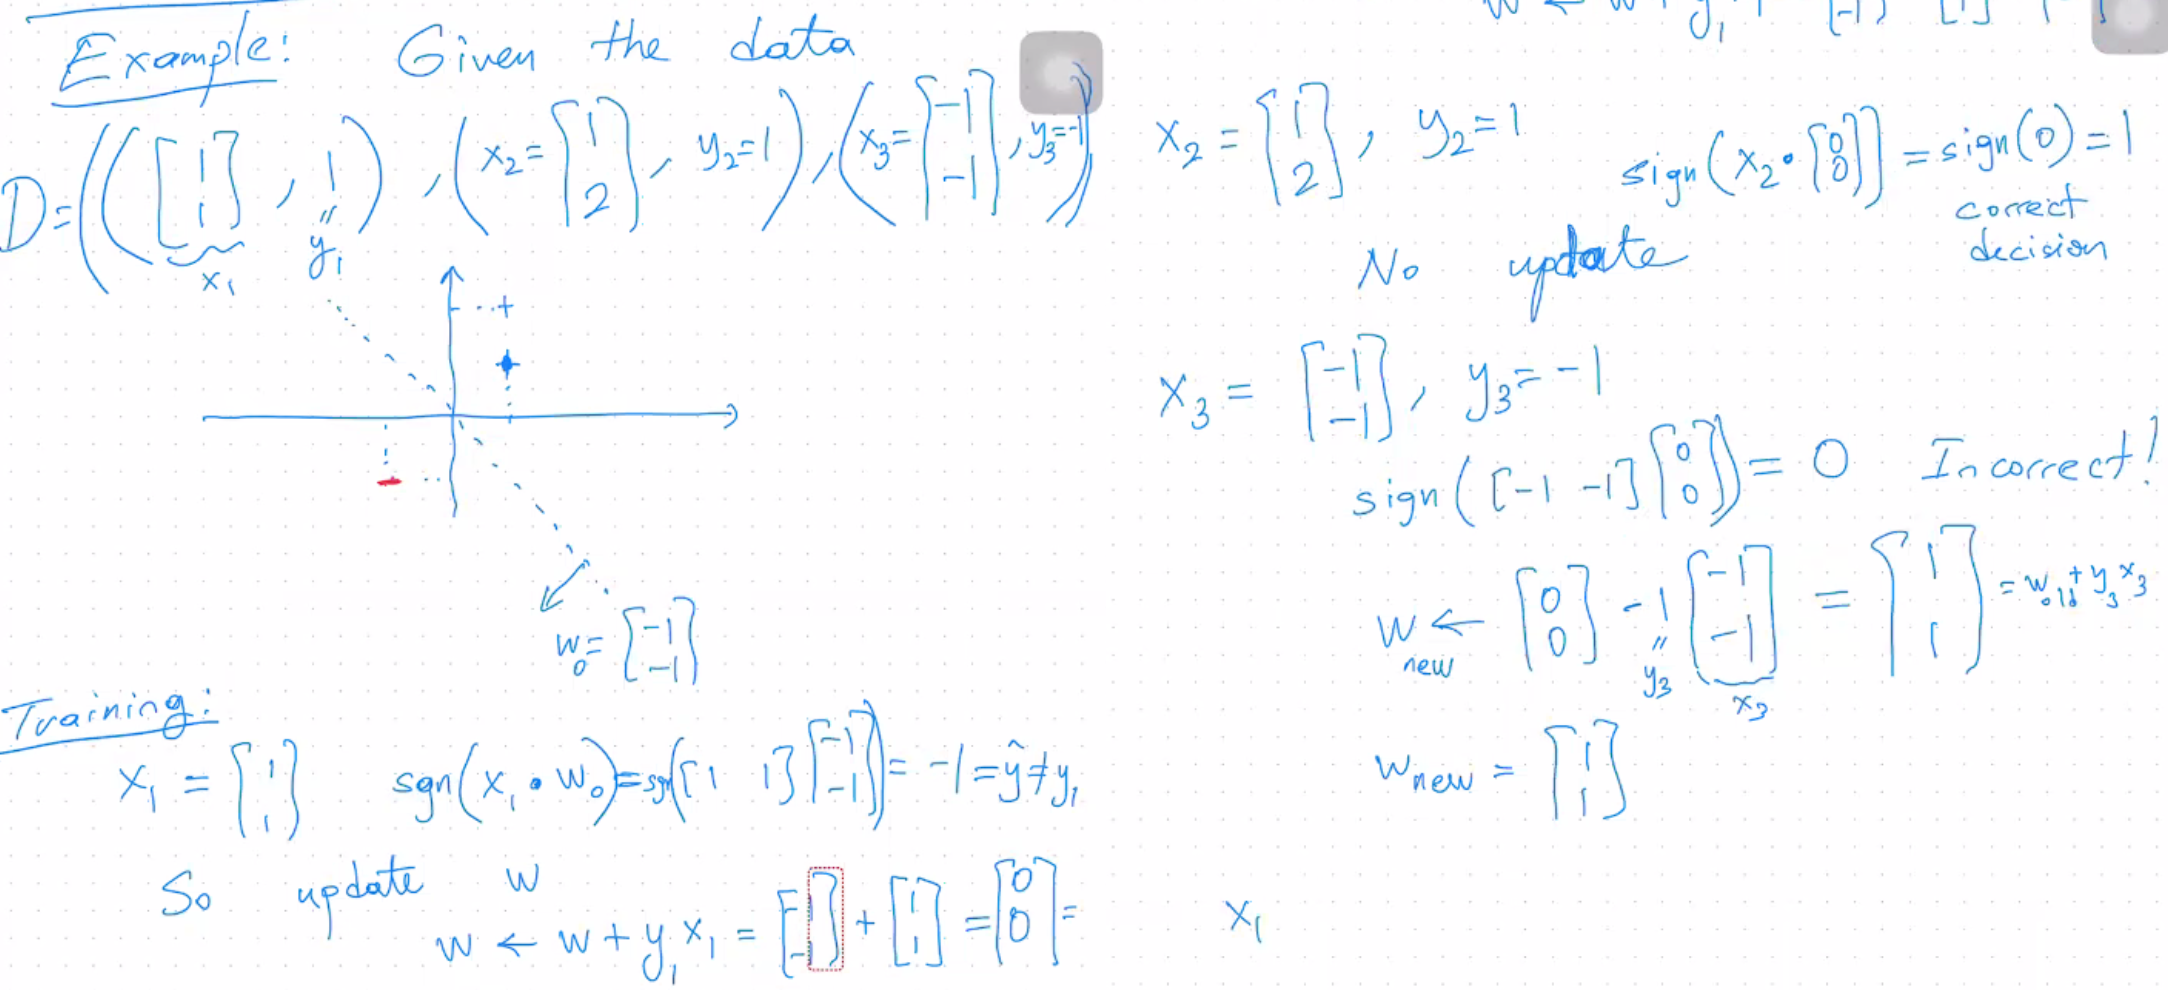 Example: Given the data
D = (([1 1], 1), (x₂ = [1 2], y₂ = 1), (x₃ = [-1 -1], y₃ = -1))
x₁ " y₁
+
w₀ = [-1 -1]
Training:
x₁ = [1 1] sgn(x₁ • w₀) = sgn([1 1][-1 -1]) = -1 = ŷ ≠ y₁
So update w
w ← w + y₁ x₁ = [-1 -1] + [1 1] = [0 0] =
x₂ = [1 2], y₂ = 1
sign(x₂ • [0 0]) = sign(0) = 1
correct
decision
No update
x₃ = [-1 -1], y₃ = -1
sign([-1 -1][0 0]) = 0 Incorrect!
w_new ← [0 0] -1 [-1 -1] = [1 1] = w_old + y₃ x₃
" y₃ x₃
w_new = [1 1]
x₁